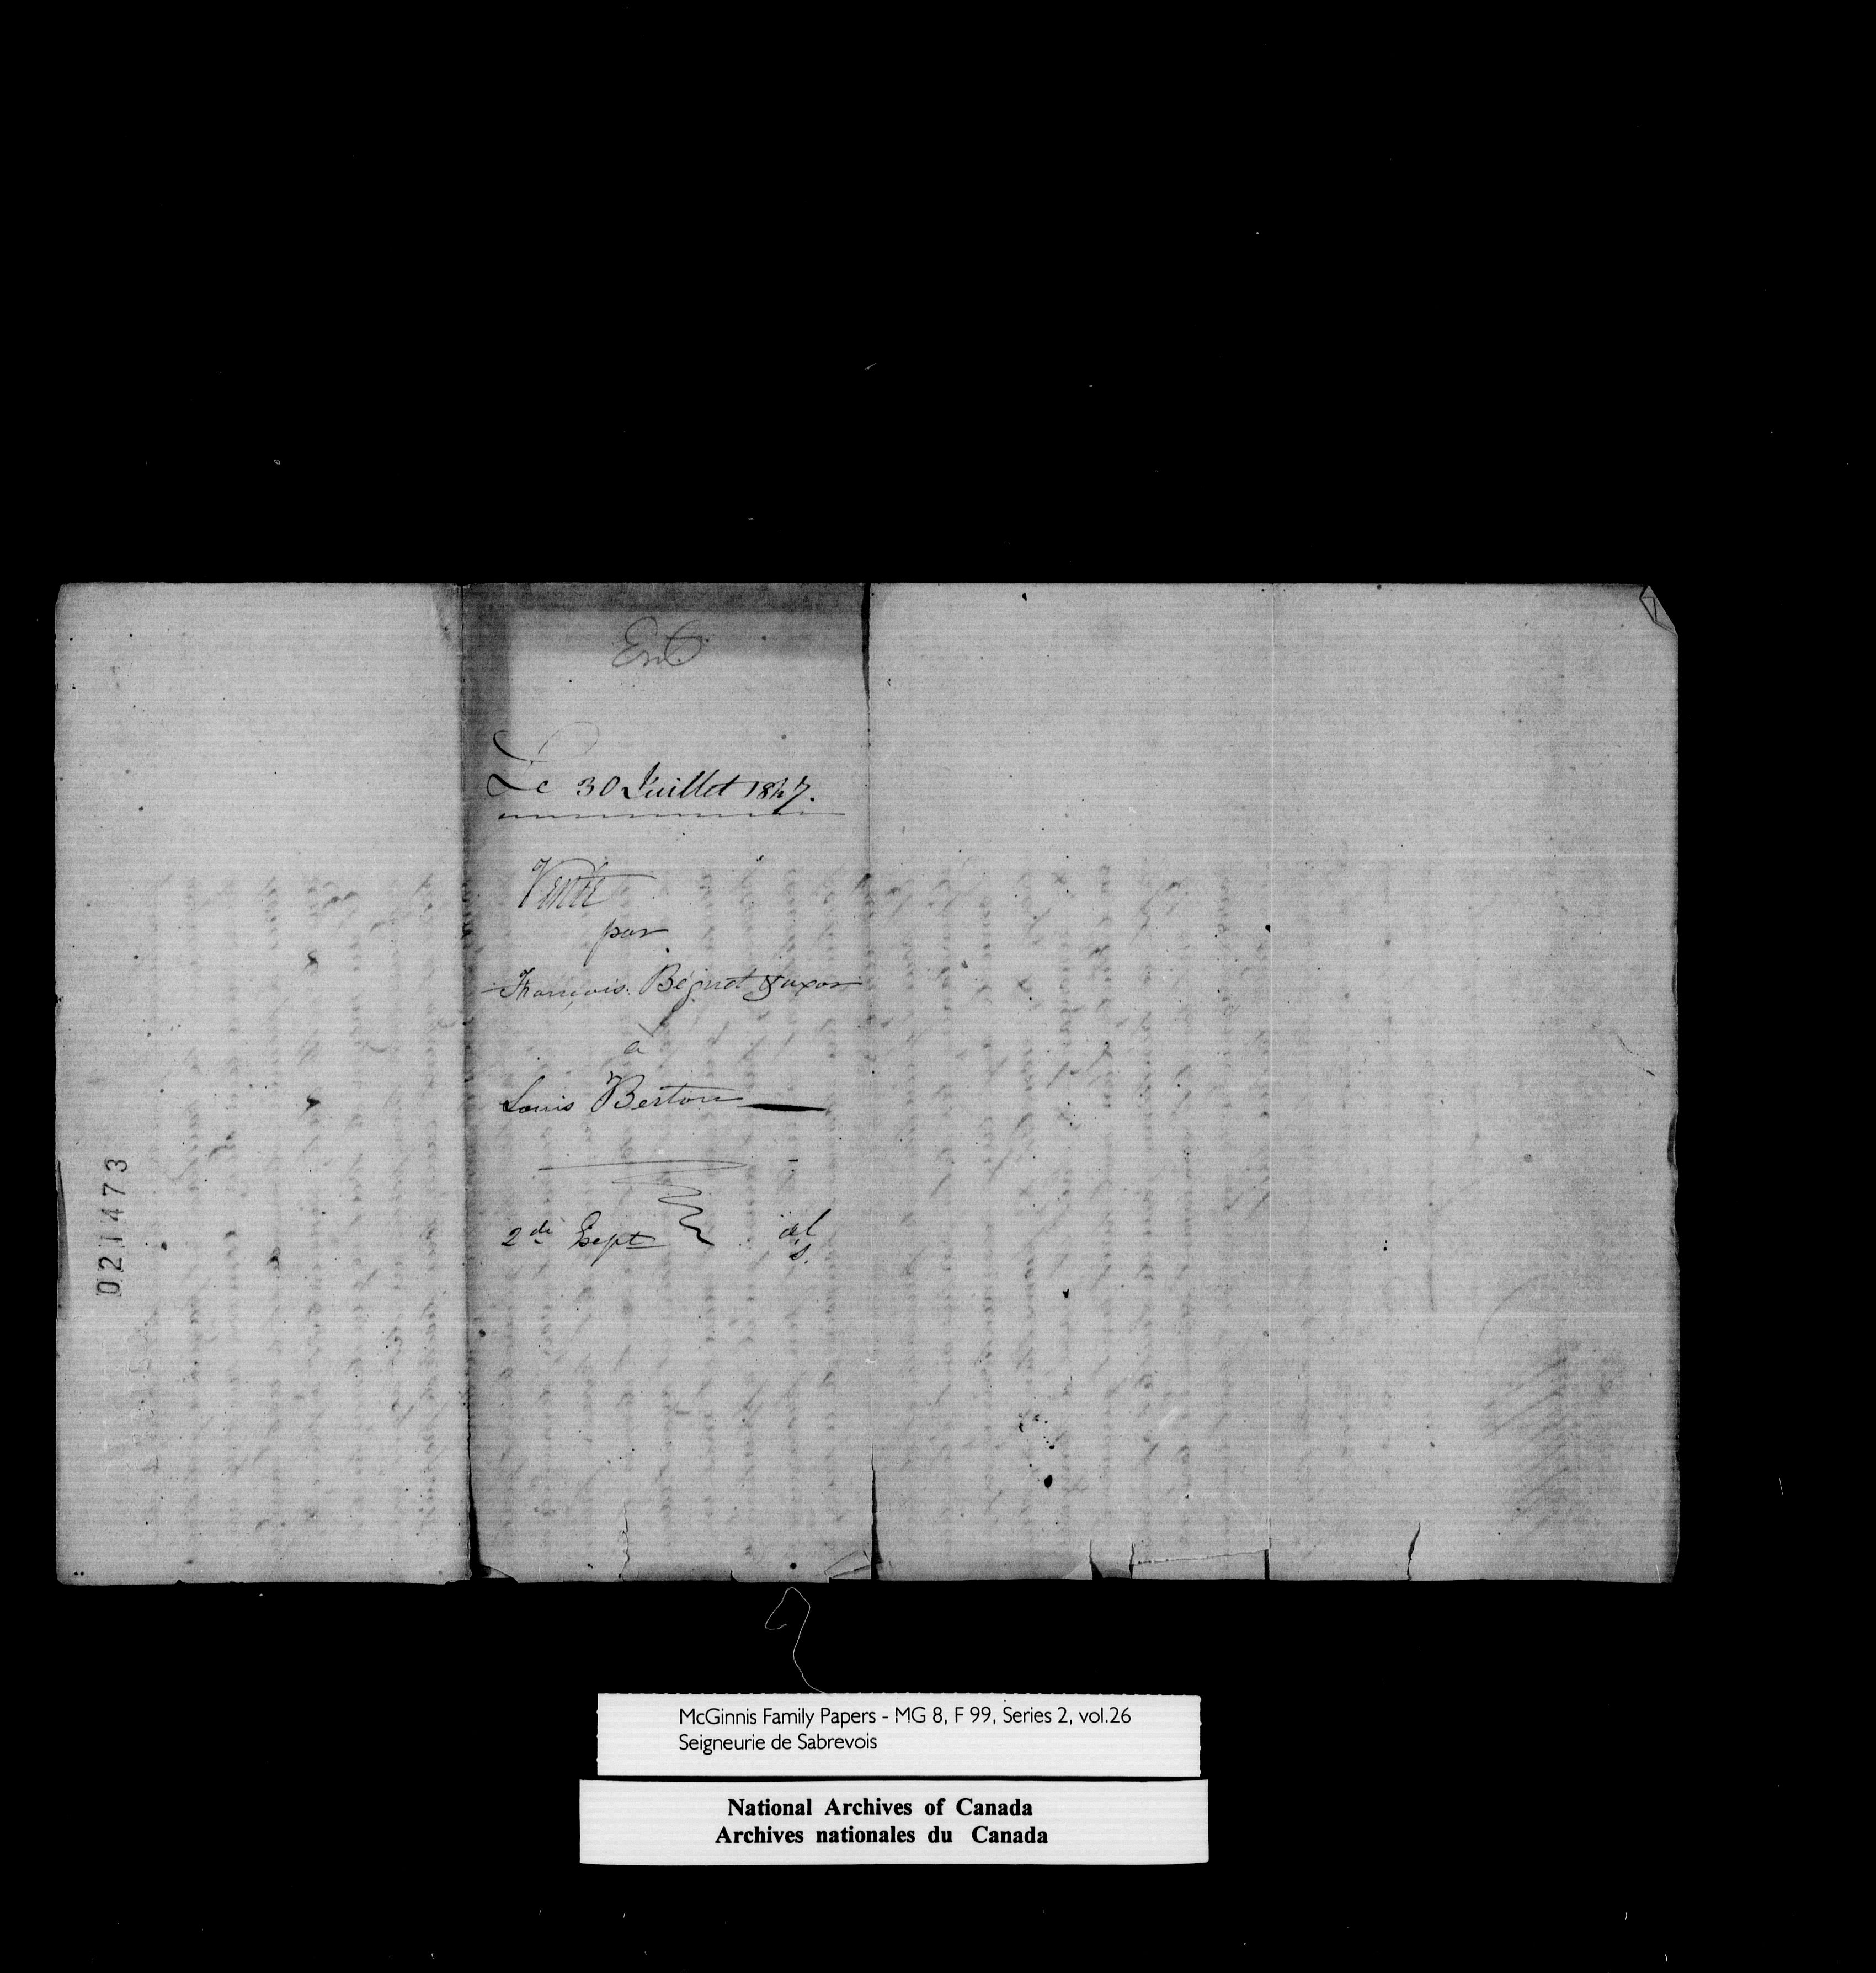 Ent.
Le 30 Juillet 1847.
Vente
par
François Béguet & uxor
à
Louis Berton
2de Expt
021473
McGinnis Family Papers - MG 8, F 99, Series 2, vol.26
Seigneurie de Sabrevois
National Archives of Canada
Archives nationales du Canada